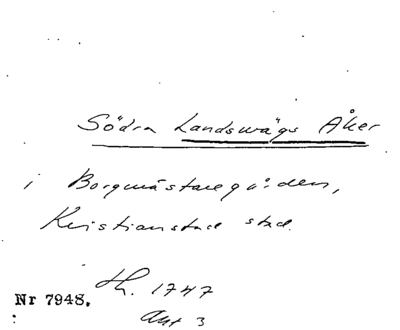 Södra Landswägs Åker
i Borgmästaregården,
Kristianstad stad.
Th. 1747
Nr 7948.
Akt 3